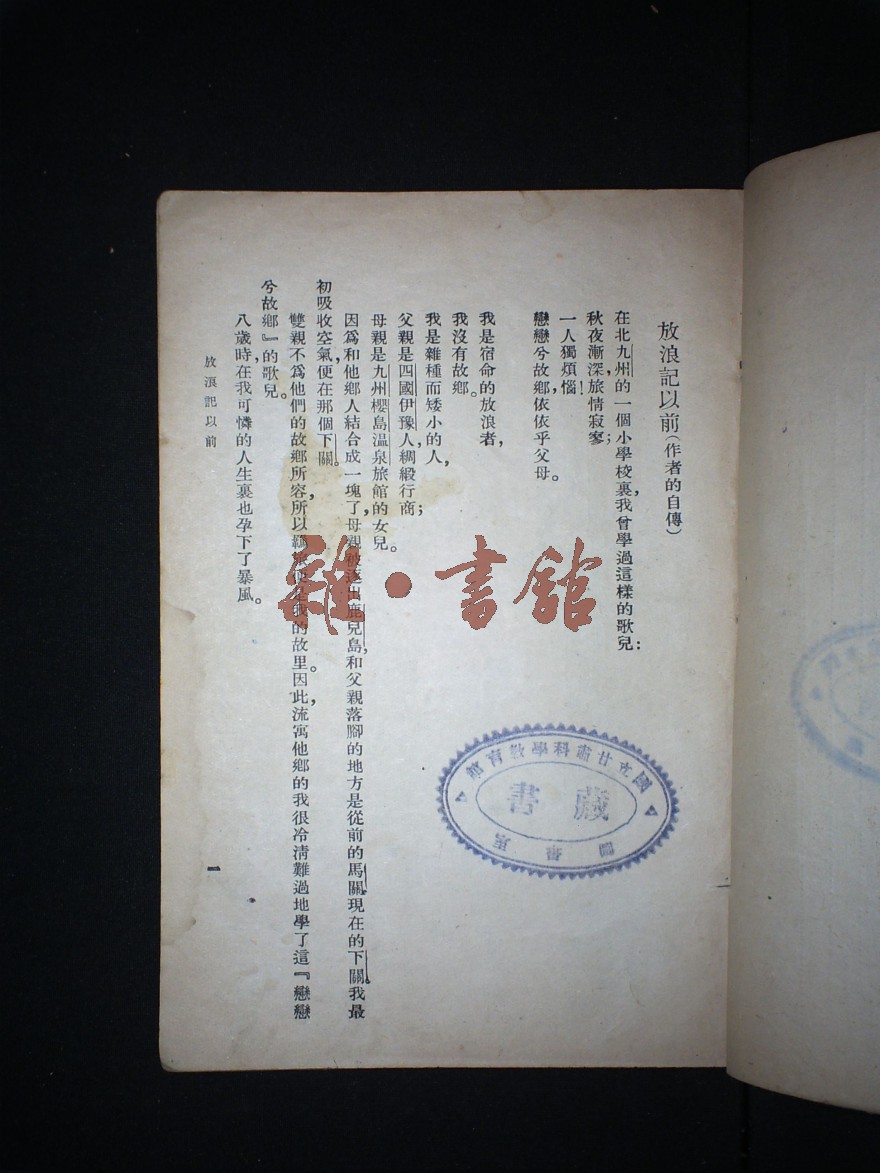 放浪記以前(作者的自傳)
在北九州的一個小學校裏,我曾學過這樣的歌兒:
秋夜漸深,旅情寂寥;
一人獨煩惱!
戀戀兮故鄉,依依乎父母。
我是宿命的放浪者,
我沒有故鄉。
我是雜種而矮小的人,
父親是四國伊豫人,綢緞行商;
母親是九州櫻島溫泉旅館的女兒。
因爲和他鄉人結合成一塊了,母親被逐出鹿兒島,和父親落腳的地方是從前的馬關,現在的下關。我最
初吸收空氣,便在那個下關。
雙親不爲他們的故鄉所容,所以 是我的故里。因此,流寓他鄉的我很冷清難過地學了這『戀戀
兮故鄉』的歌兒。
八歲時,在我可憐的人生裏也孕下了暴風。
放浪記以前
一
雜·書館
國立甘肅科學教育館
藏書
圖書室